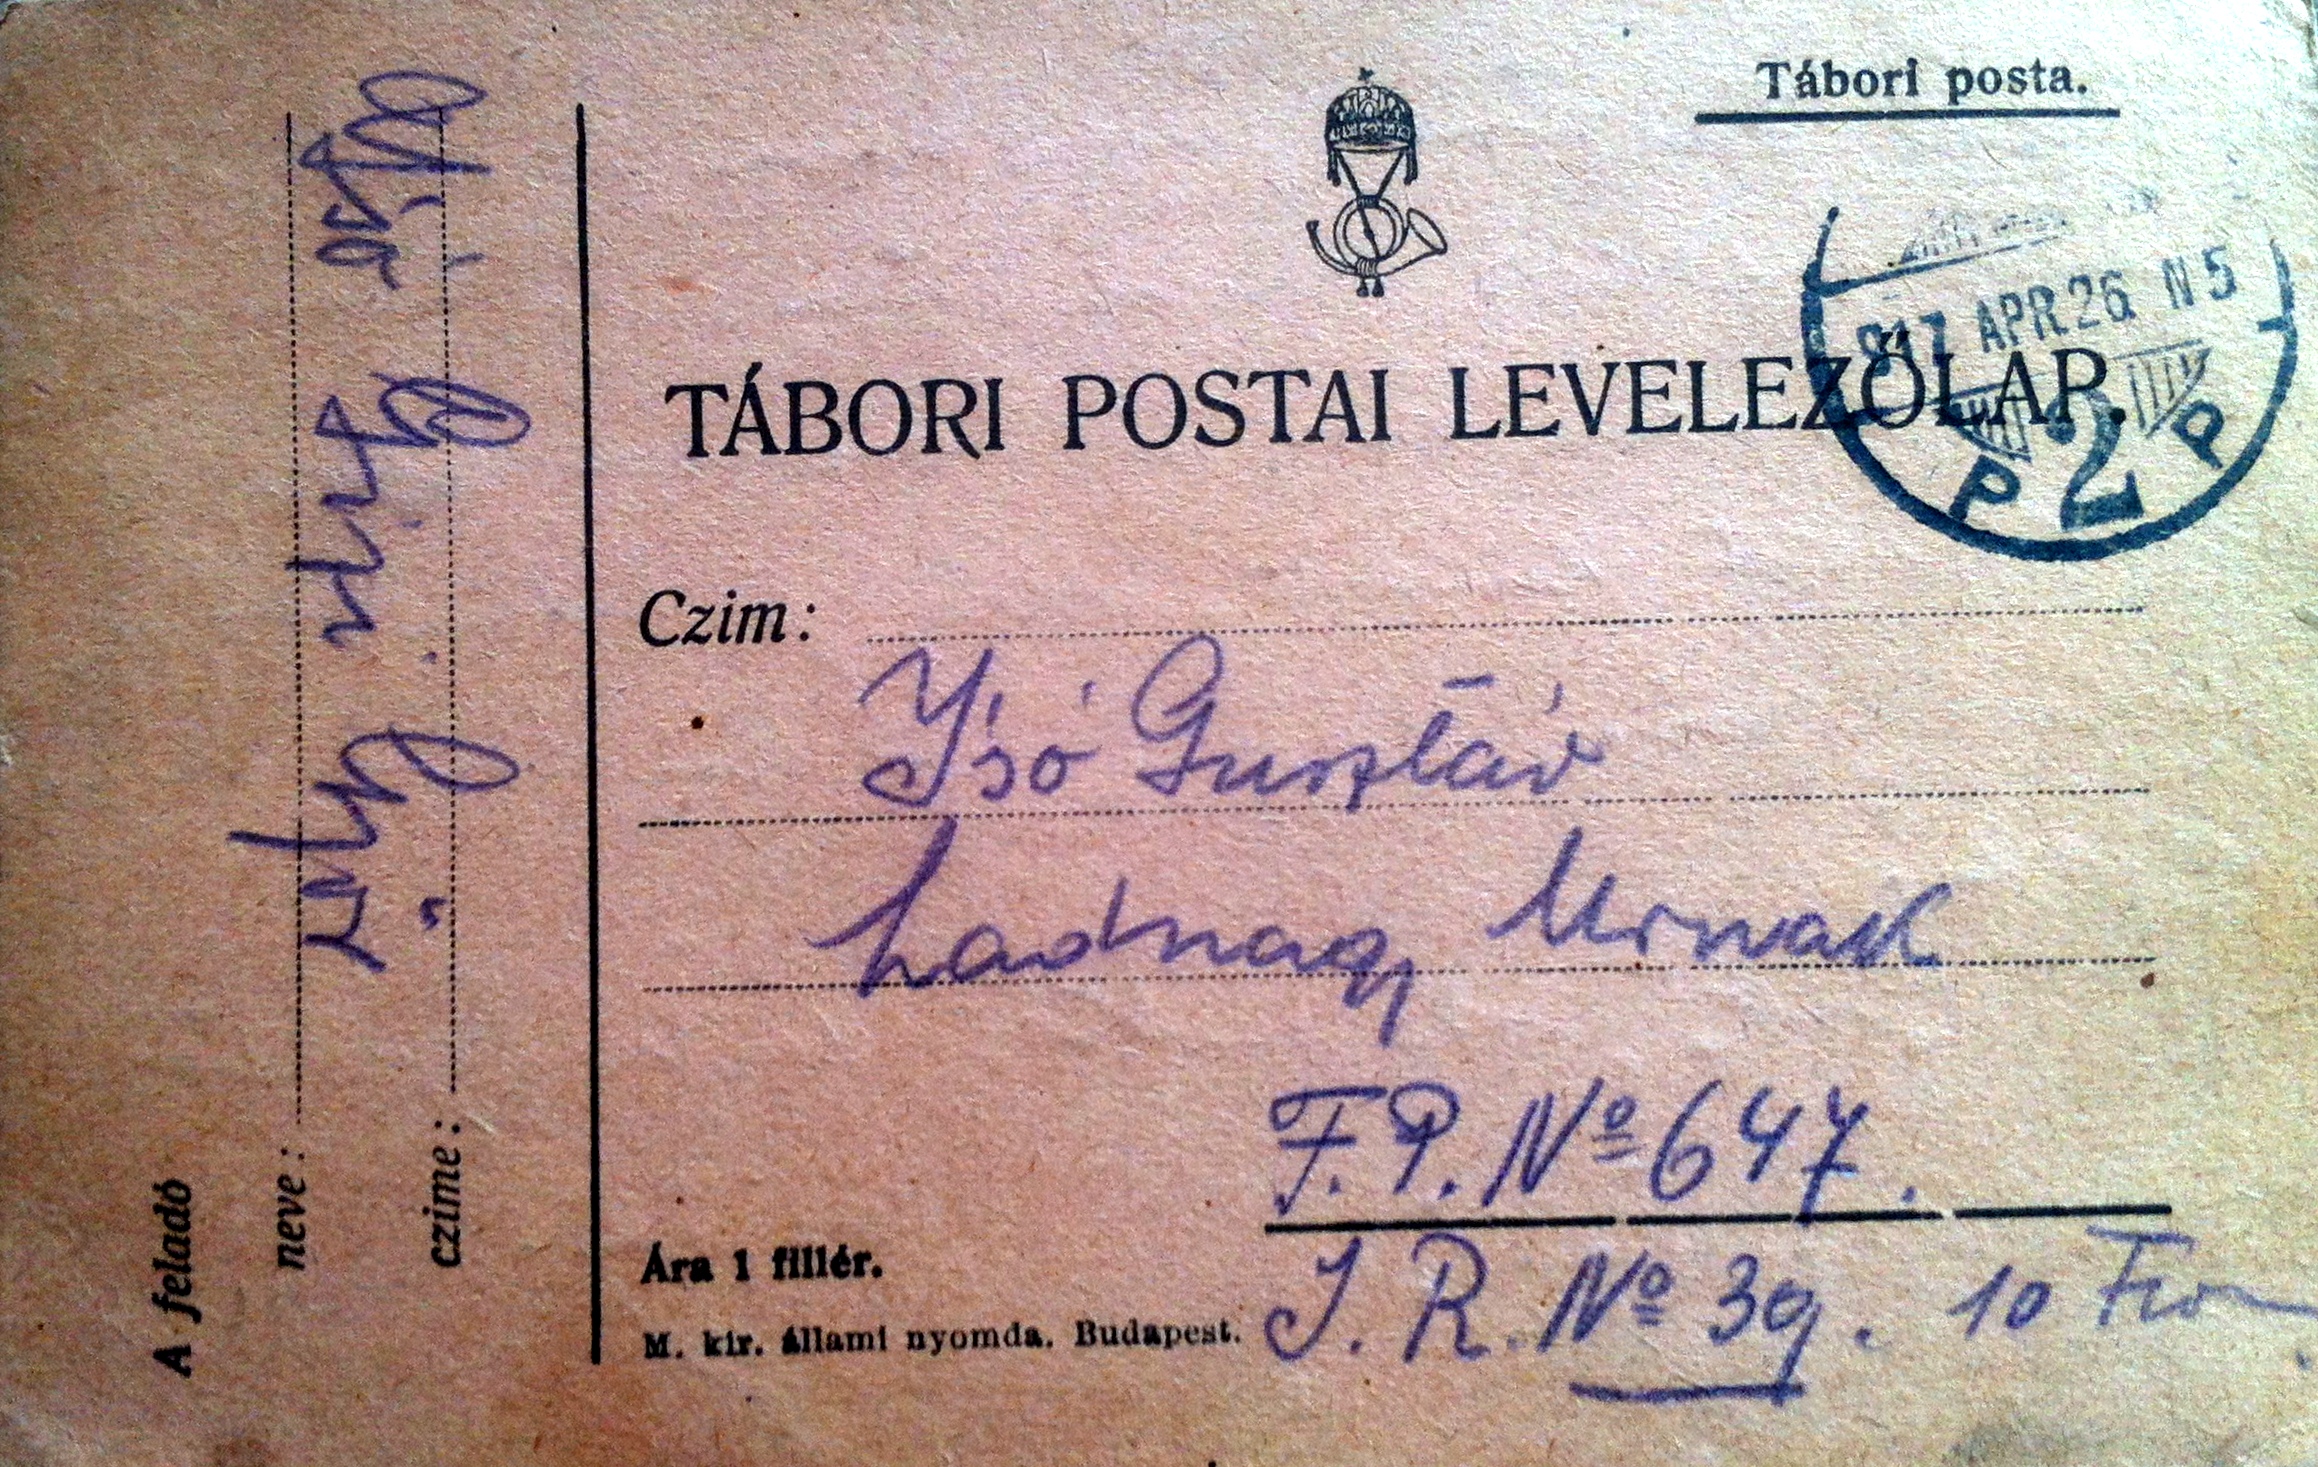 Tábori posta.
917 APR 26 N 5
P 2 P
TÁBORI POSTAI LEVELEZŐLAP.
Czim:
Ysó Gusztáv
hadnagy Urnak
F. P. Nº 647.
I. R. Nº 39. 10
Ára 1 fillér.
M. kir. állami nyomda. Budapest.
A feladó
neve:
czime: